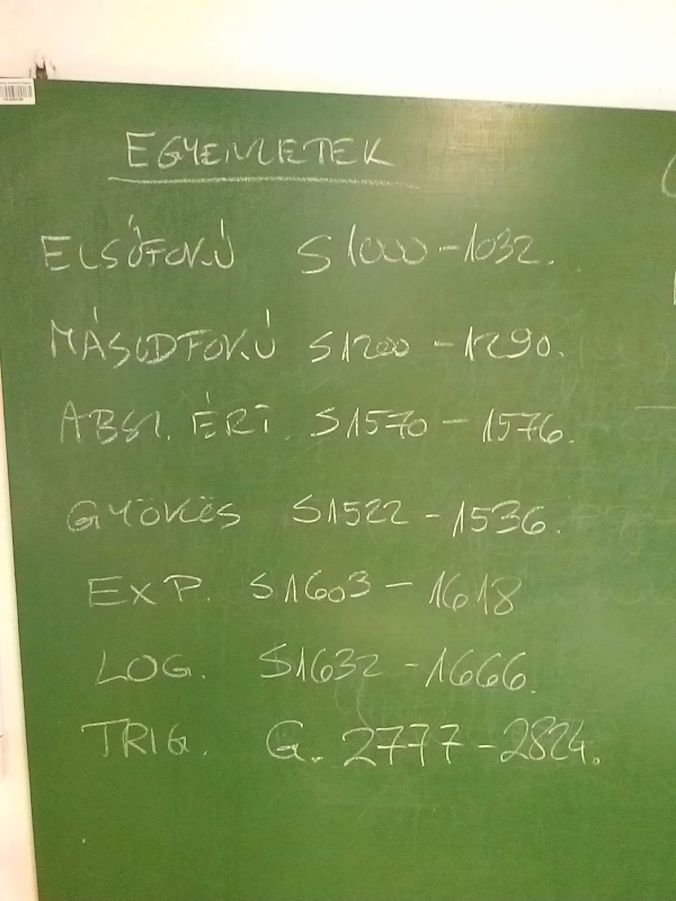 EGYENLETEK
ELSŐFOKÚ S1000-1032.
MÁSODFOKÚ S1200-1290.
ABSZ. ÉRT. S1570-1576.
GYÖKÖS S1522-1536.
EXP. S1603-1618
LOG. S1632-1666.
TRIG. G. 2777-2824.